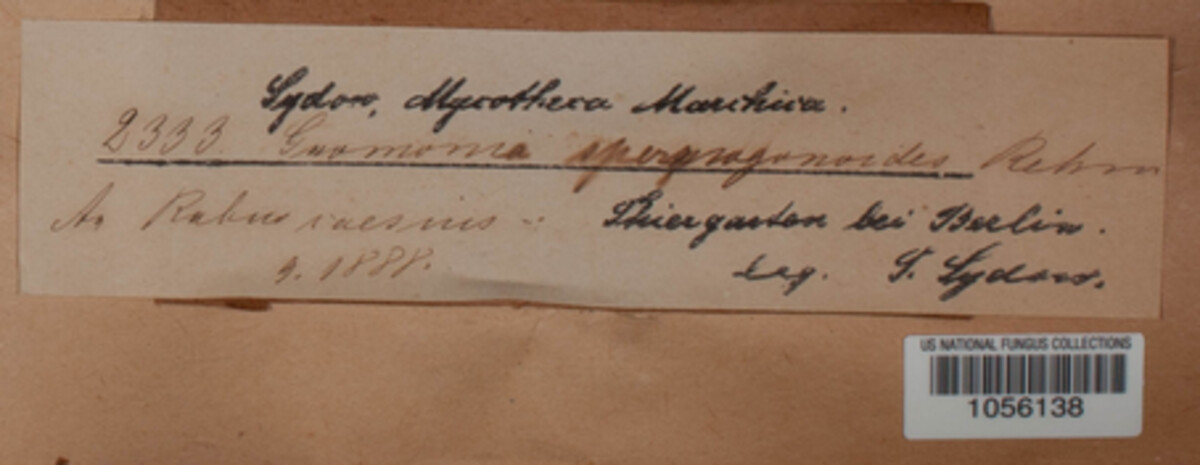 Sydow, Mycotheca Marchica.
2333 Gnomonia Rehm
An Rubus caesius.
Thiergarten bei Berlin.
9. 1888.
Leg. P. Sydow.
US NATIONAL FUNGUS COLLECTIONS
1056138